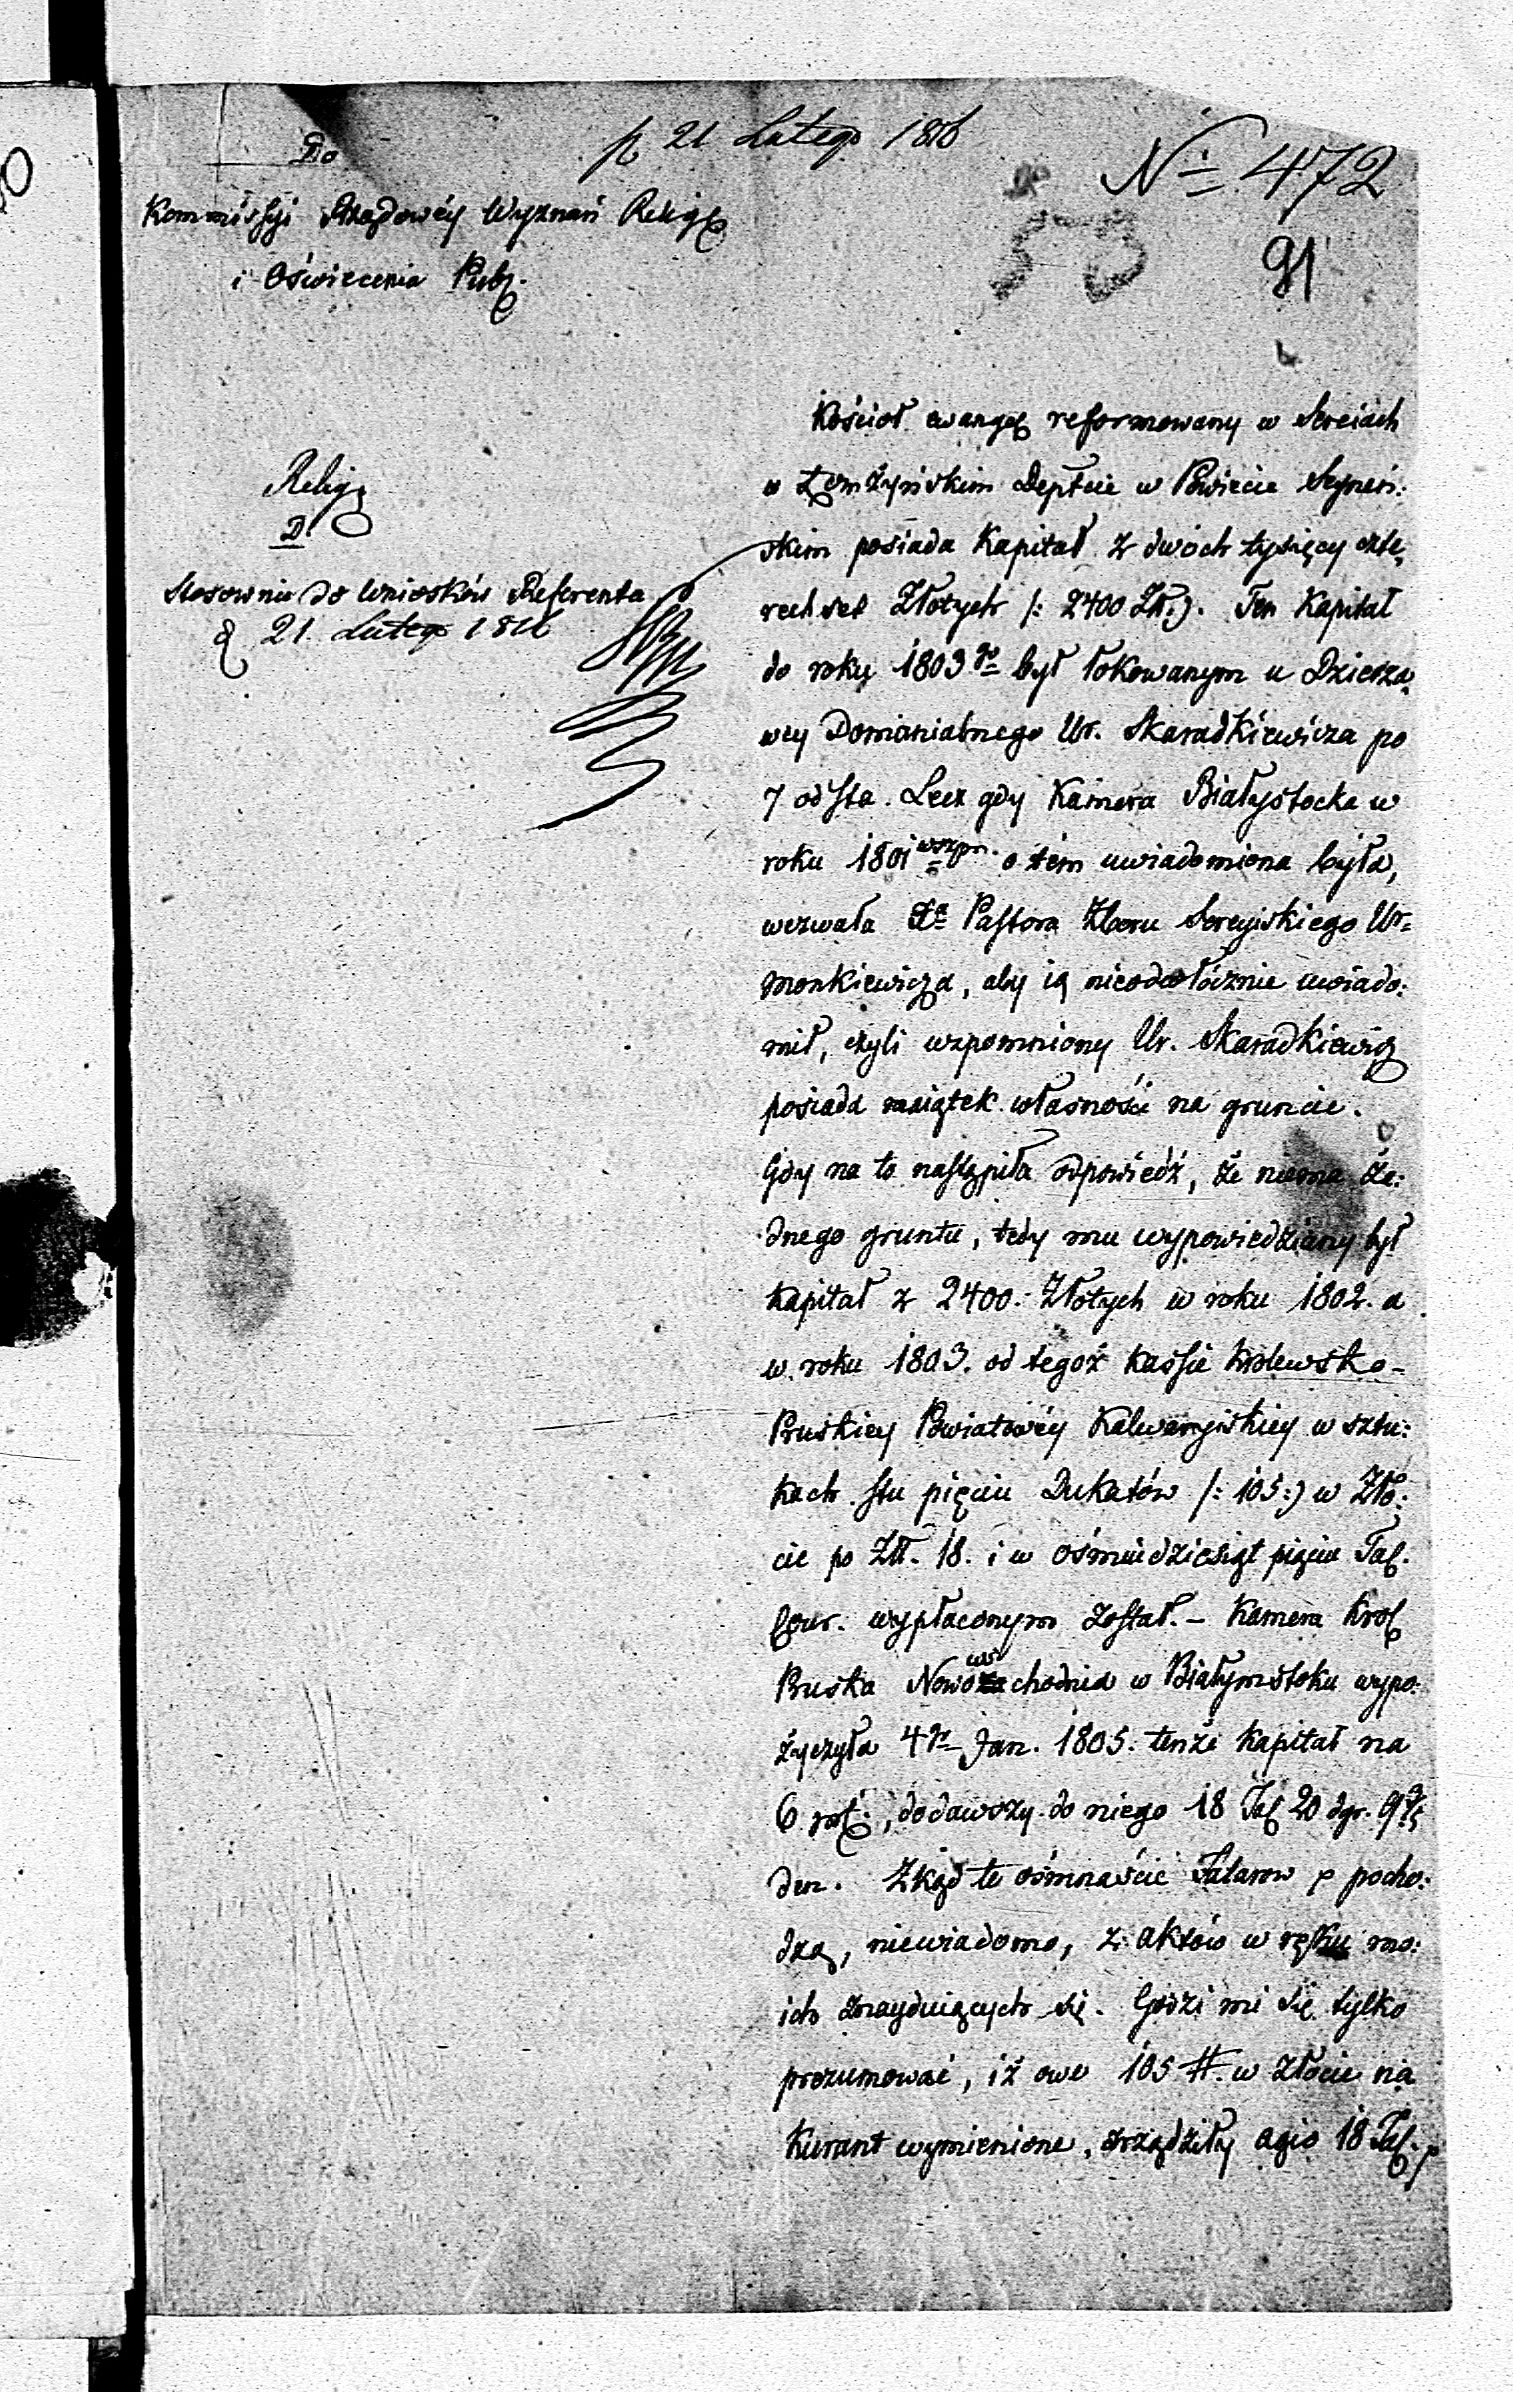 Do
p 21 Lutego 1816
N 472
Kommissyi Rządowéy Wyznań Relig
91
i Oświecenia Pub.
Kościoł ewang reformowany w Sereiach
Relig
w Łomżyńskim Deptcie w Powiecie Seyneń:
D.
skim posiada Kapitał z dwóch tysięcy czte
Stosownie do Wniosków Referenta
rech set Złotych /: 2400 Zł:). Ten Kapitał
d 21. Lutego 1816
do roku 1803 go był lokowanym u Dzierża
wcy Domanialnego Ur. Skaradkiewicza po
7 od Sta. Lecz gdy Kamera Białystocka w
roku 1801 wszym o tém uwiadomiona była,
wezwała Pastora Zboru Sereyiskiego Ur=
Monkiewicza, aby ią nieodwłócznie uwiado:
mił, czyli wzpomniony Ur. Skaradkiewicz
posiada maiątek własności na gruncie.
Gdy na to nastąpiła odpowiedź, że niema ża:
dnego gruntu, tedy mu wypowiedziany był
Kapitał z 2400. Złotych w roku 1802. a
w roku 1803. od tegoż Kassie Krolewsko-
Pruskiey Powiatowéy Kalwaryiskiey w sztu:
kach stu pięciu Dukatów /: 105:) w Zło:
cie po Zł. 18. i w ośmiudziesiąt pięciu Tal.
Cour. wypłaconym został. - Kamera Krol
Pruska Nowowschodnia w Białymstoku wypo:
życzyła 4 go Jan. 1805. tenże Kapitał na
6 , dodawszy do niego 18 Tal 20 dgr. 9
den. Zkąd te ośmnaście Talarow p pocho:
dzą, niewiadomo, z aktów w ręku mo:
ich znayduiących się. Godzi mi się tylko
prozumować, iż owe 105 #. w złocie na
Kurant wymienione, zrządziły agio 18 Tal. p